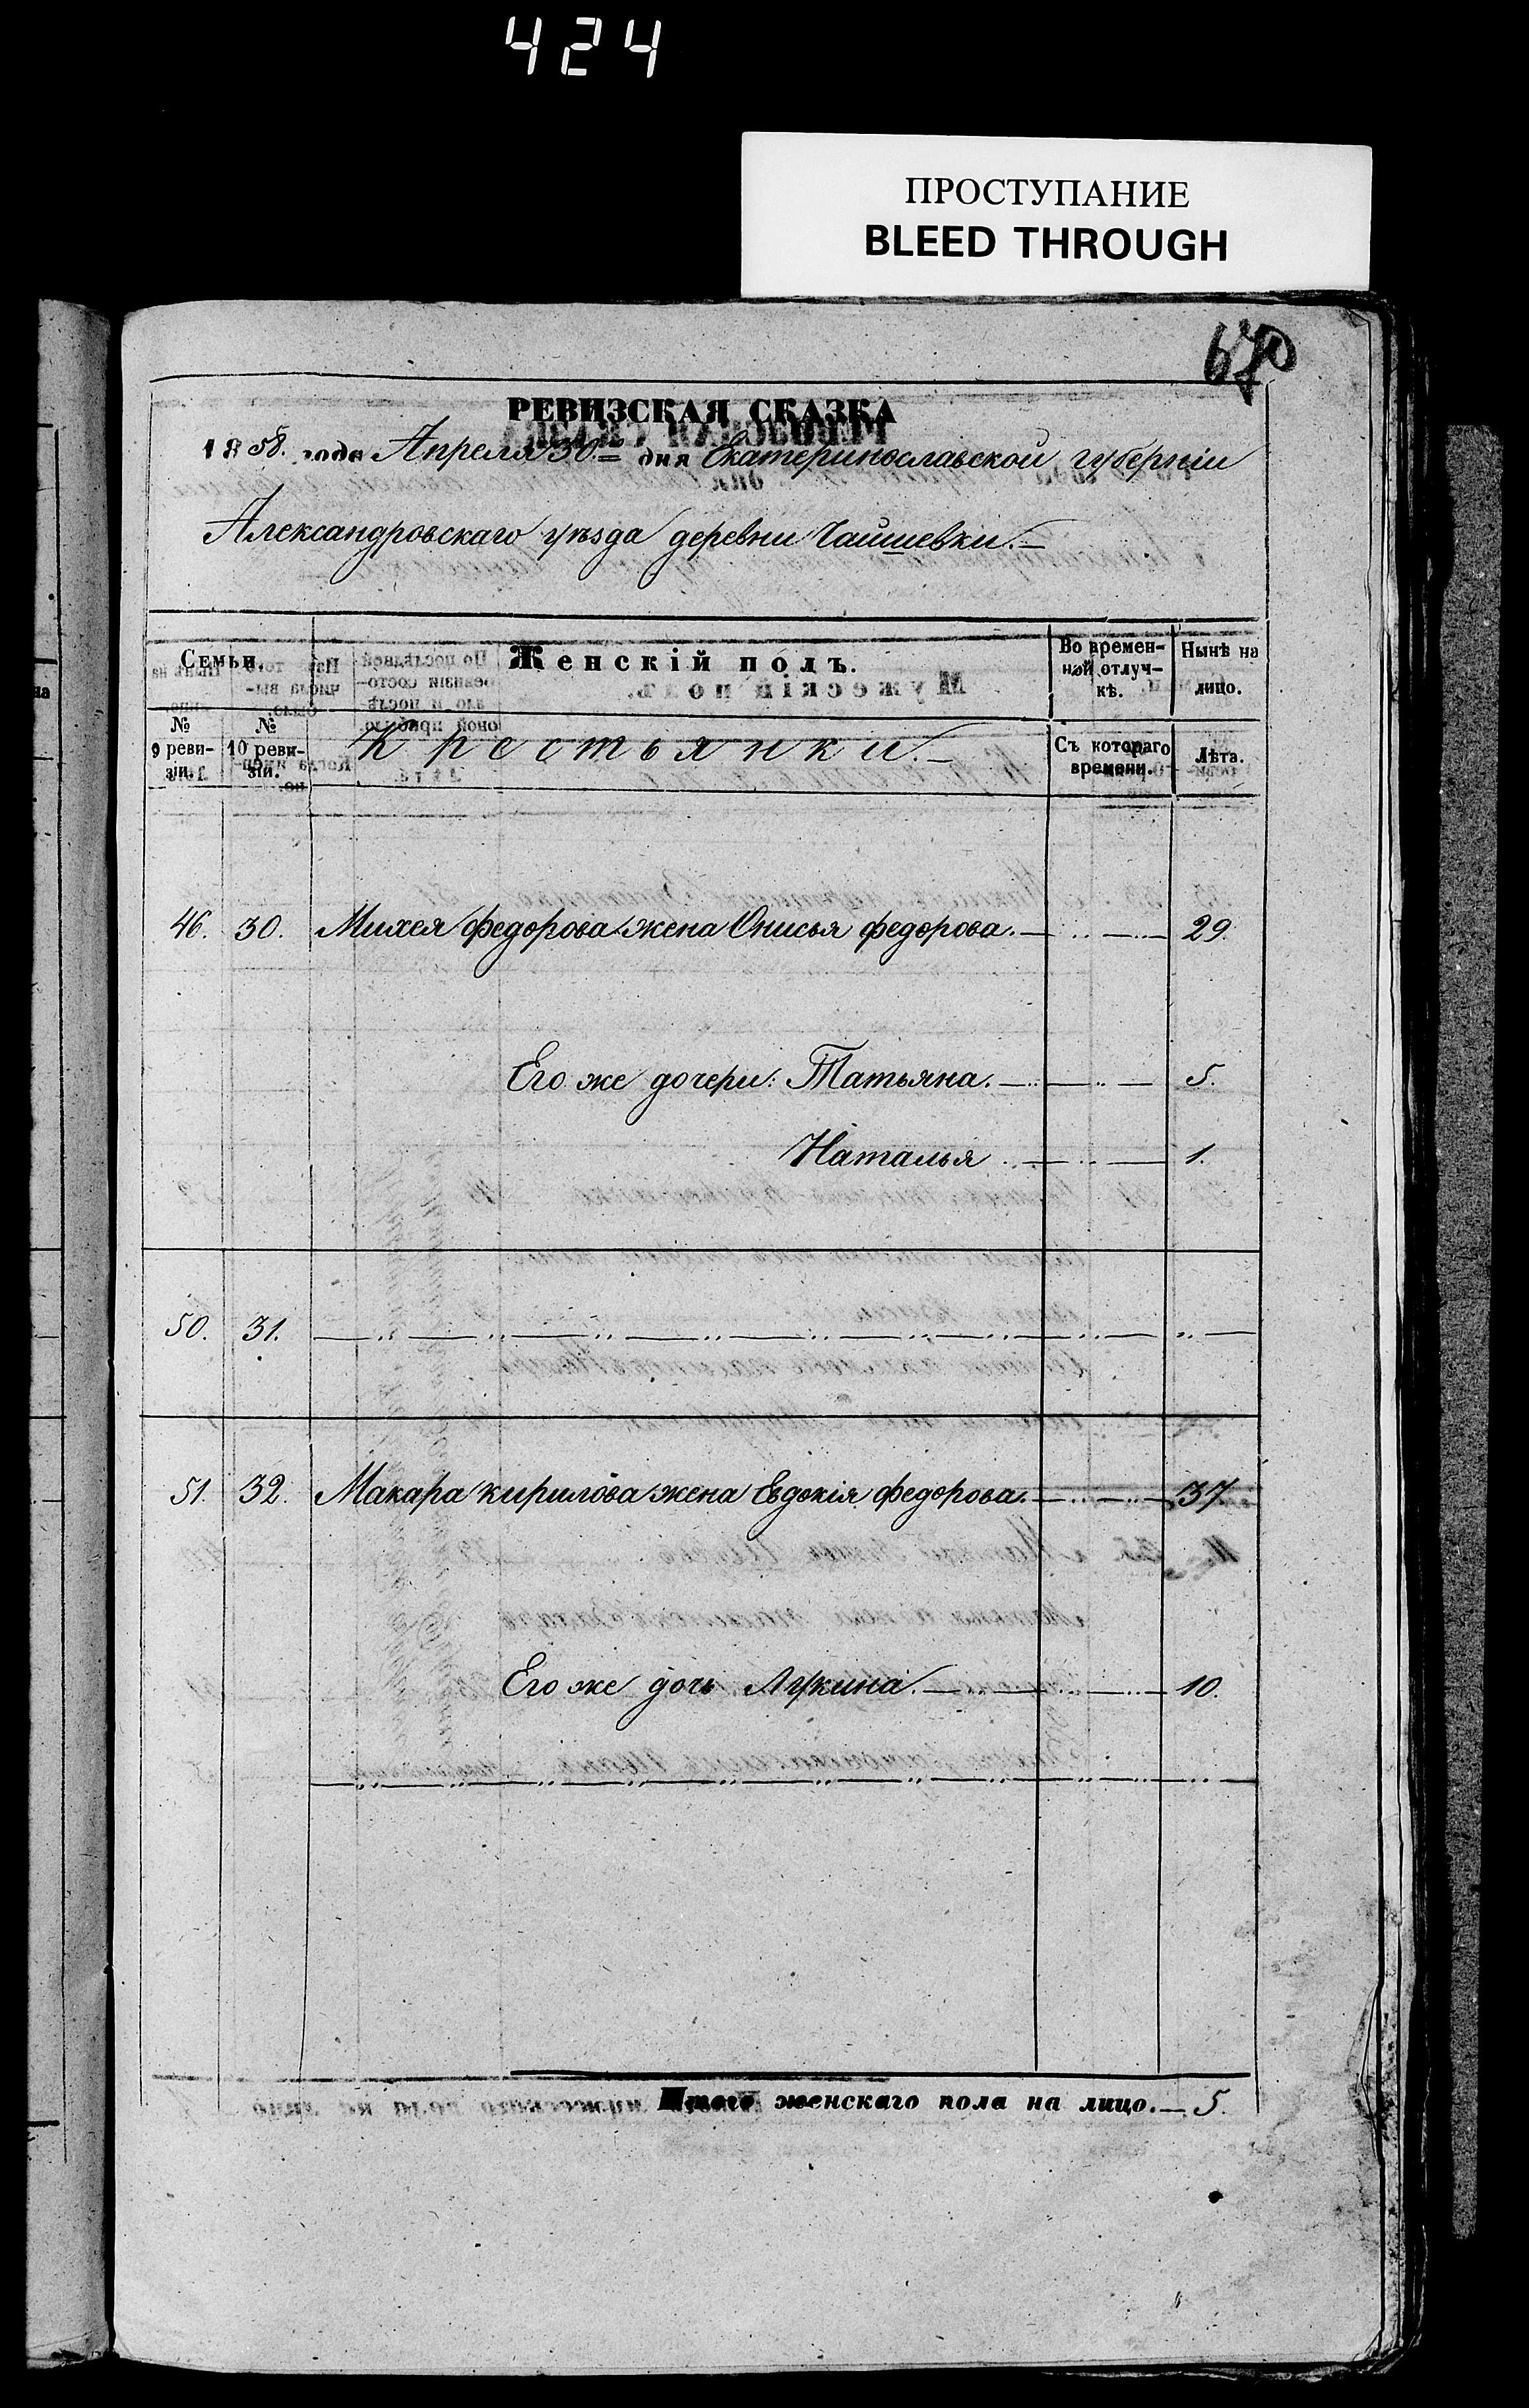 424
ПРОСТУПАНИЕ
BLEED THROUGH
РЕВИЗСКАЯ СКАЗКА
1858. года Апреля 30.го дня Екатеринославской губерніи
Александровскаго уѣзда деревни Чайшевки.—
Семьи.
Женскій полъ.
Во времен-
ной отлуч-
кѣ.
Нынѣ на
лицо.
№
9 реви-
зіи.
№
10 реви-
зіи.
Крестьянки.—
Съ котораго
времени.
Лѣта.
46. 30. Михея Федорова жена Онисья Федорова. — 29.
Его же дочери: Татьяна. — 5.
Наталья — 1.
50. 31.
51. 32. Макара Кирилова жена Евдокія Федорова. — 37
Его же дочь Лукина. — 10.
Итого женскаго пола на лицо. — 5.